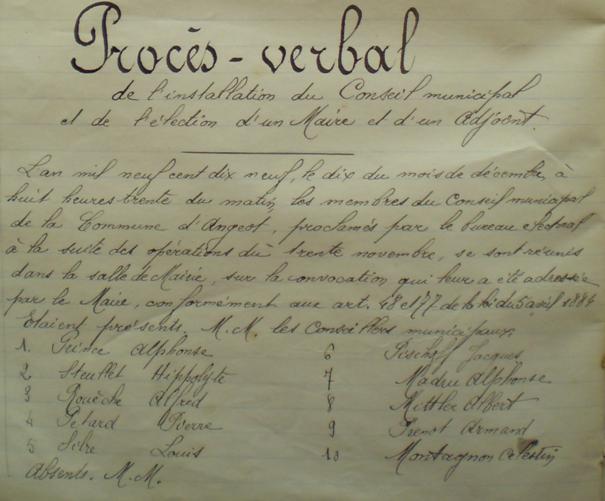 Procès-verbal
de l'installation du Conseil municipal
et de l'élection d'un Maire et d'un Adjoint.
L'an mil neuf cent dix neuf, le dix du mois de décembre, à
huit heures trente du matin, les membres du Conseil municipal
de la Commune d'Angeot, proclamés par le bureau électoral
à la suite des opérations du trente novembre, se sont réunis
dans la salle de Mairie, sur la convocation qui leur a été adressée
par le Maire, conformément aux art. 48 et 77 de la loi du 5 avril 1884
Etaient présents. M.M. les Conseillers municipaux,
1. Prince Alphonse
2 Steullet Hippolyte
3 Rouèche Alfred
4 Petard Pierre
5 Louis
6 Bischoff Jacques
7 Alphonse
8 Mittler Albert
9 Prenot Armand
10 Montagnon Celestin
Absents. M.M.